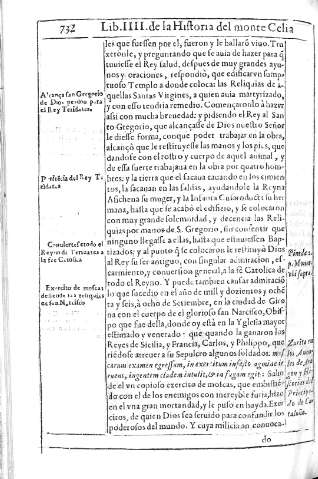 732 Lib. IIII. de la Historia del monte Celia
les que fuessen por el, fueron y le hallarõ viuo. Tra
xeronle, y preguntandole que se auia de hazer para q̃
tuuiesse el Rey salud, despues de muy grandes ayu-
nos y oraciones, respondiò, que edificaren sump-
tuoso Templo a donde colocar las Reliquias de a-
quellas Santas Virgines, a quien auia martyrizado,
y con esso tendria remedio. Començaronlo à hazer
assi con mucha breuedad: y pidiendo el Rey al San
to Gregorio, que alcançasse de Dios nuestro Señor
le diesse forma, conque poder trabajar en la obra,
alcançò que le restituyesse las manos y los pies, que
dandose con el rostro y cuerpo de aquel animal, y
de essa fuerte trabajaua en la obra por quatro hom-
bres: y la tierra que el sacaua cauando en los cimien
tos, la sacauan en las faldas, ayudandole la Reyna
Aschena su muger, y la Infanta su her
mana, hasta que se acabò el edificio, y se colocaron
con muy grande solemnidad, y decencia las Reli-
quias por manos de S. Gregorio, sin consentir que
ninguno llegasse a ellas, hasta que estuuiessen Bap-
tizados; y al punto q̃ se colocaron le restituyò Dios
al Rey su ser antiguo, con singular admiracion, es-
carmiento, y conuersion general, a la fè Catolica de
todo el Reyno. Y puede tambien causar admiraciõ
lo que sucedio en el año de mil y dozientos y ochẽ
ta y seis, à ocho de Setiembre, en la ciudad de Giro
na con el cuerpo de el glorioso san Narciso, Obis-
po que fue della, donde oy està en la Yglesia mayor
estimado y venerado: que quando la ganaron los
Reyes de Sicilia, y Francia, Carlos, y Philippo, que
riẽdose atreuer a su Sepulcro algunos soldados: mus
carum examen egressum, in exercitum infesto agmine ir
ruens, ingentem cladem intulit, & in fugam egit: Saliò
de el vn copioso exercito de moscas, que embistiẽ-
do con el de los enemigos con increyble furia, hizo
en el vna gran mortandad, y le puso en huyda. Exer
citos, de quien Dios sea seruido para confundir los
poderosos del mundo. Y cuya milicia an conuoca-
do
Alcança san Gregorio
de Dios perdon para
el Rey Teridates.
Penitẽcia del Rey T
ridates.
Conuiertese todo el
Reyno de Armenia a
la Fee Catolica.
Exercito de moscas
defiende las reliquias
de san Narciso.